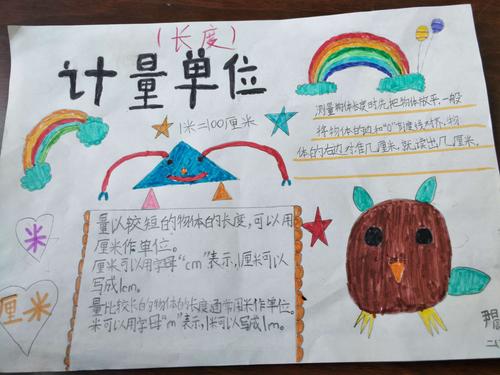 （长度）
计量单位
1米=100厘米
测量物体长度时,先把物体放平,一般
将物体的边和“0”刻度线对齐,物
体的右边对准几厘米,就读出几厘米。
米
厘米
量以较短的物体的长度,可以用
厘米作单位。
厘米可以用字母“cm”表示,1厘米可以
写成1cm。
量比较长的物体的长度通常用米作单位。
米可以用字母“m”表示,1米可以写成1m。